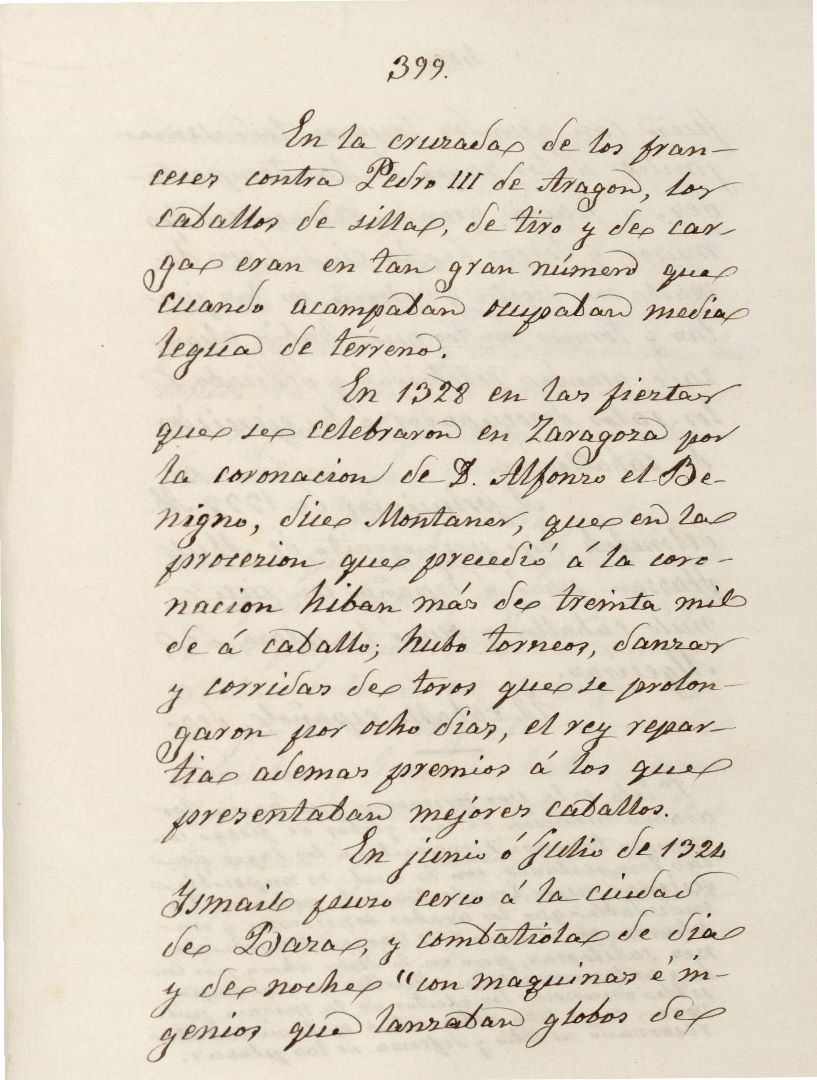 399.
En la cruzada de los fran-
ceses contra Pedro III de Aragon, los
caballos de silla, de tiro y de car-
ga eran en tan gran número que
cuando acampaban ocupaban media
legua de terreno.
En 1328 en las fiestas
que se celebraron en Zaragoza por
la coronacion de D. Alfonso el Be-
nigno, dice Montaner, que en la
procesion que precedió á la coro-
nacion hiban más de treinta mil
de á caballo; hubo torneos, danzas
y corridas de toros que se prolon-
garon por ocho dias, el rey repar-
tia ademas premios á los que
presentaban mejores caballos.
En junio ó Julio de 1324
Ismail puso cerco á la ciudad
de Baza, y combatiola de dia
y de noche "con maquinas é in-
genios que lanzaban globos de